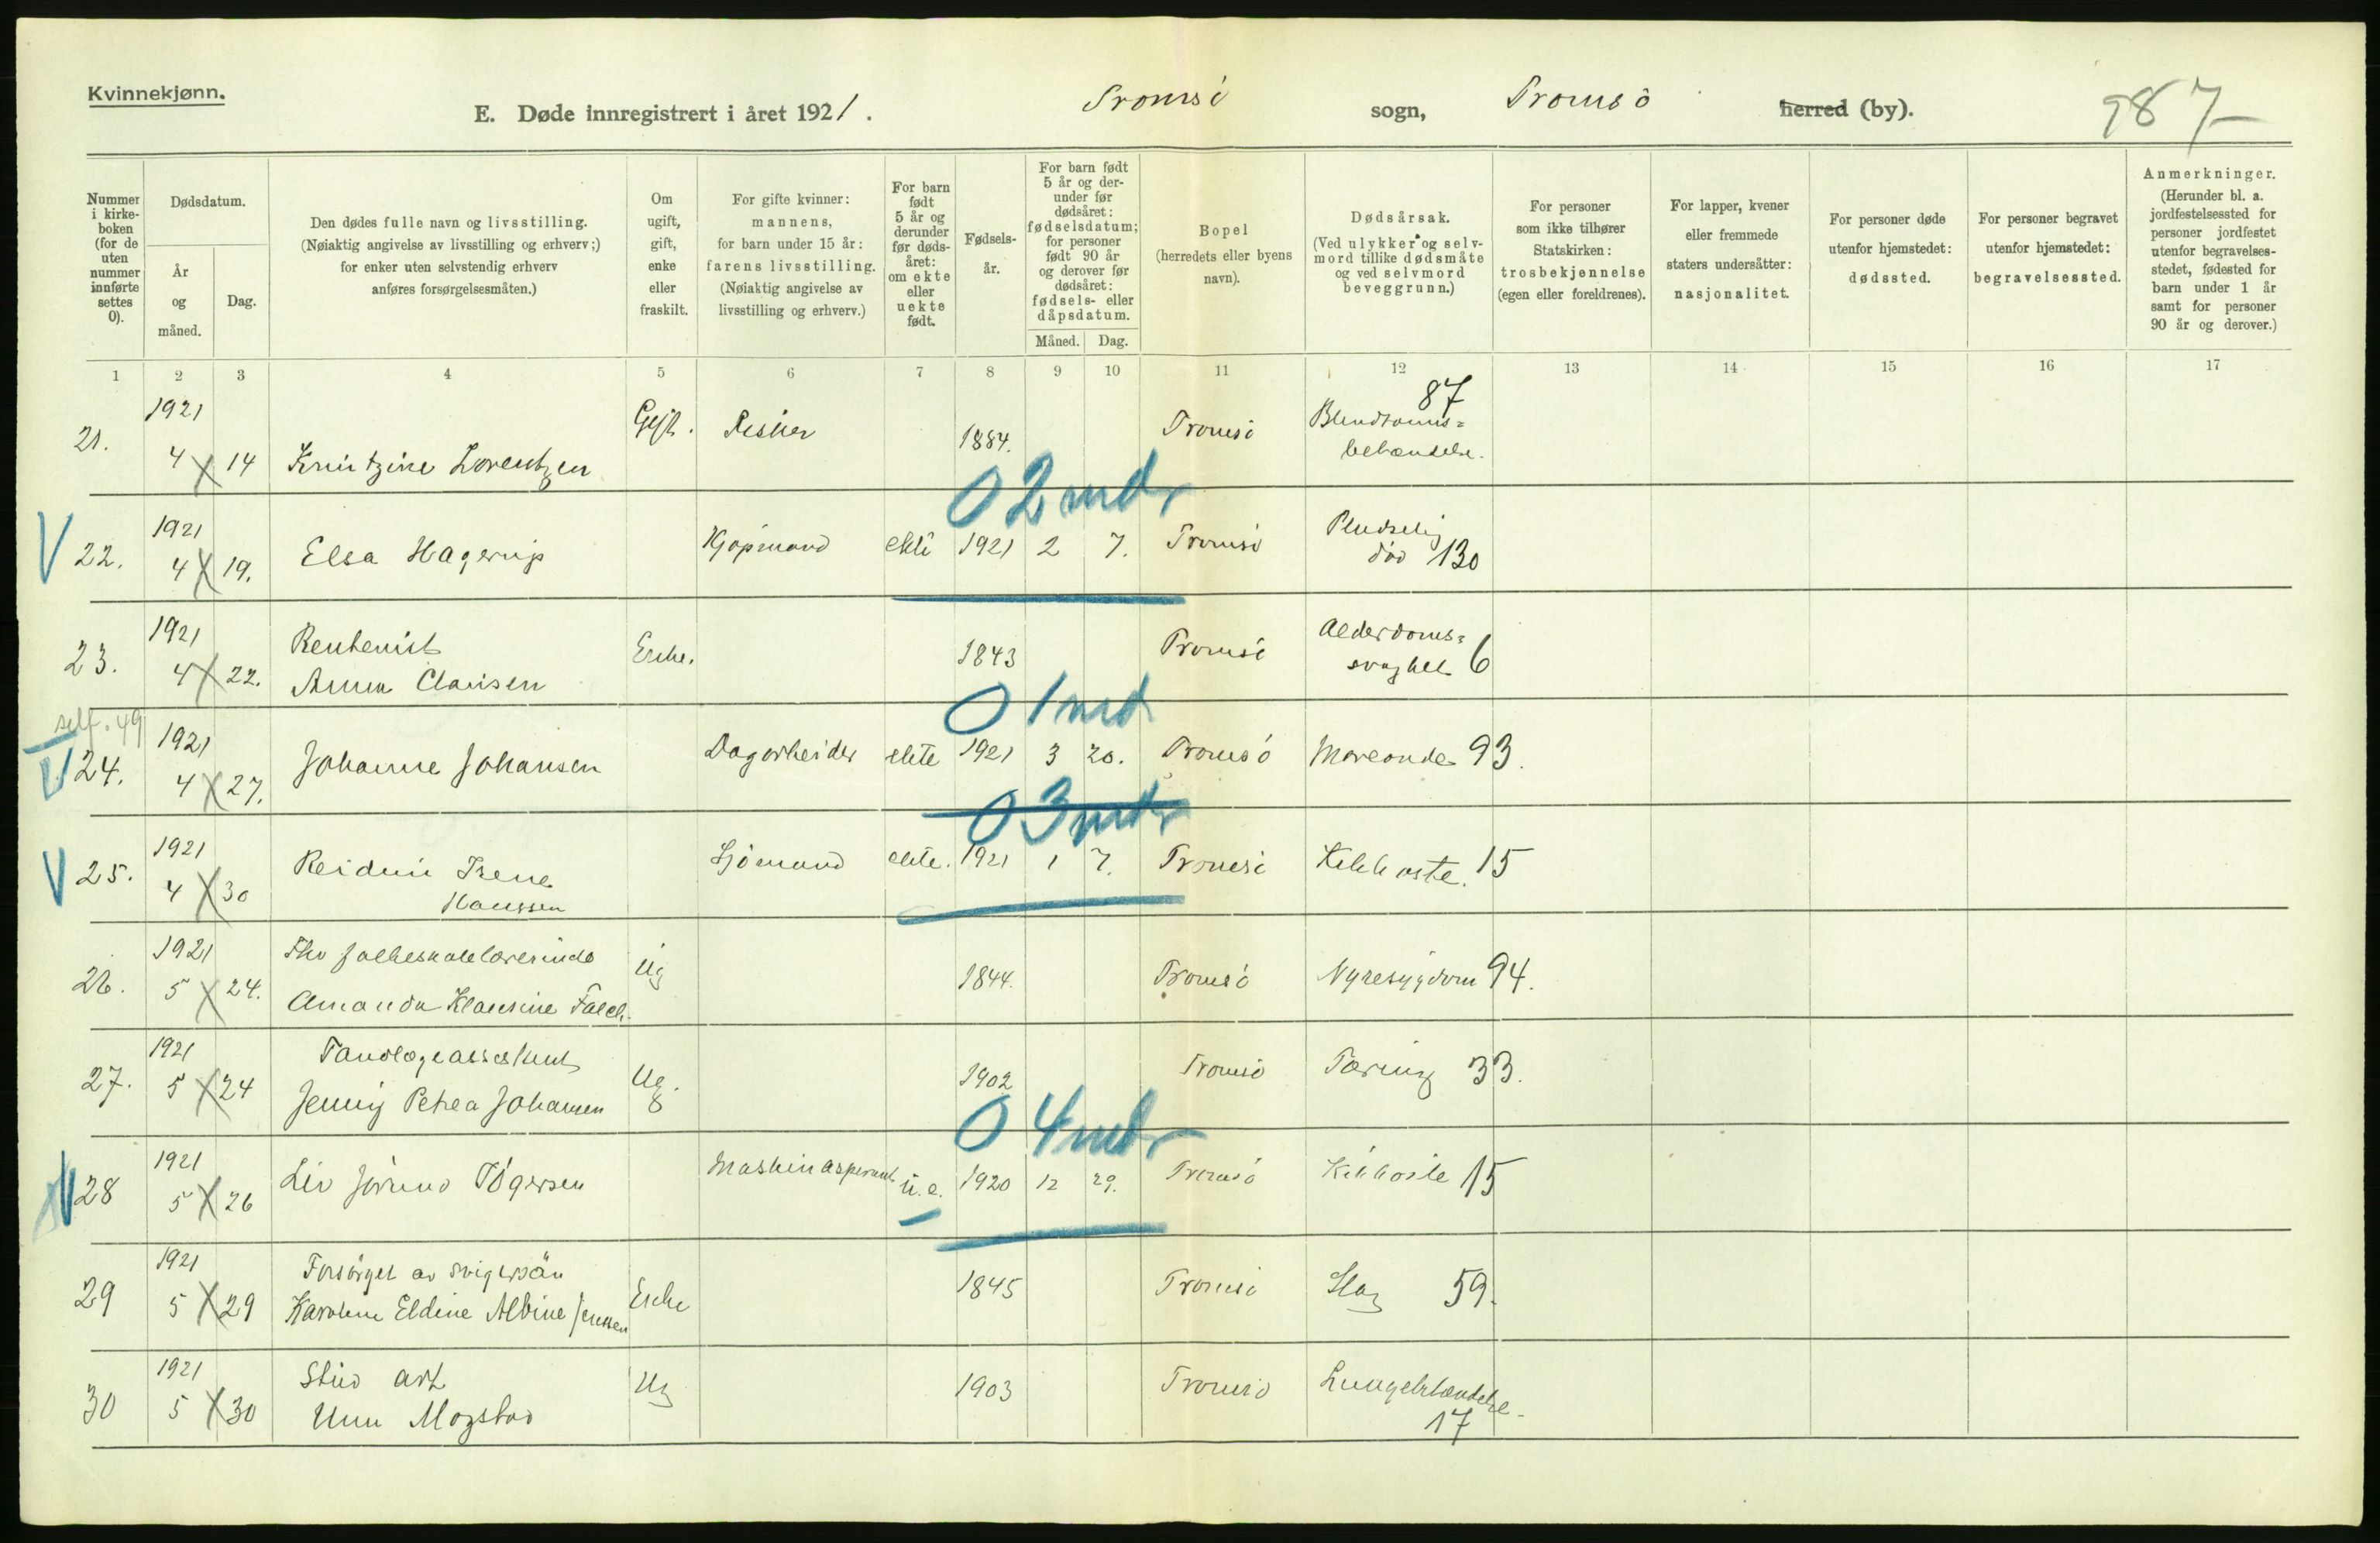 Kvinnekjønn.
E. Døde innregistrert i året 1921. Tromsö sogn, Tromsö herred (by). 987
Nummer i kirkeboken (for de uten nummer innførte settes 0).
Dødsdatum.
År og måned.
Dag.
Den dødes fulle navn og livsstilling.
(Nøiaktig angivelse av livsstilling og erhverv;)
for enker uten selvstendig erhverv
anføres forsørgelsesmåten.)
Om ugift, gift, enke eller fraskilt.
For gifte kvinner: mannens,
for barn under 15 år: farens livsstilling.
(Nøiaktig angivelse av livsstilling og erhverv.)
For barn født 5 år og derunder før dødsåret: om ekte eller uekte født.
Fødselsår.
For barn født 5 år og derunder før dødsåret: fødselsdatum; for personer født 90 år og derover før dødsåret: fødsels- eller dåpsdatum.
Måned. Dag.
Bopel
(herredets eller byens navn).
Dødsårsak.
(Ved ulykker og selvmord tillike dødsmåte og ved selvmord beveggrunn.)
For personer som ikke tilhører Statskirken: trosbekjennelse (egen eller foreldrenes).
For lapper, kvener eller fremmede staters undersåtter: nasjonalitet.
For personer døde utenfor hjemstedet: dødssted.
For personer begravet utenfor hjemstedet: begravelsessted.
Anmerkninger.
(Herunder bl. a. jordfestelsessted for personer jordfestet utenfor begravelsesstedet, fødested for barn under 1 år samt for personer 90 år og derover.)
1 2 3 4 5 6 7 8 9 10 11 12 13 14 15 16 17
21. 1921 4 14 Lorentzen Gift. Fisker 1884. Tromsö Blindtarmsbetændelse. 87
0 2 mdr
22. 1921 4 19. Elsa Hagerup Kjøpmand ekte 1921 2 7. Tromsö Pludselig död 130
23. 1921 4 22. Rentenist Anna Clausen Enke. 1843 Tromsö Alderdomssvaghet 6
0 1 md
24. 1921 4 27. Johanne Johansen Dagarbeider ekte 1921 3 20. Tromsö 93.
0 3 mdr
25. 1921 4 30 Reidun Irene Hanssen Sjömand ekte. 1921 1 7. Tromsö Kikhoste. 15
26. 1921 5 24. Fhv folkeskolelærerinde Amanda Klausine Falch. Ug 1844. Tromsö Nyresygdom 94.
27. 1921 5 24 Tandlægeassistent Jenny Petrea Johansen Ug. 1902 Tromsö Tæring 33.
0 4 mdr
28 1921 5 26 Liv Jörund Tögersen Maskinaspirant u.e. 1920 12 29. Tromsö Kikhoste 15
29 1921 5 29 Forsörget av svigersön Karoline Eldine Albine Jenssen Enke 1845 Tromsö Slag 59.
30 1921 5 30 Stud art Unn Mogstad Ug 1903 Tromsö Lungebetændelse 17